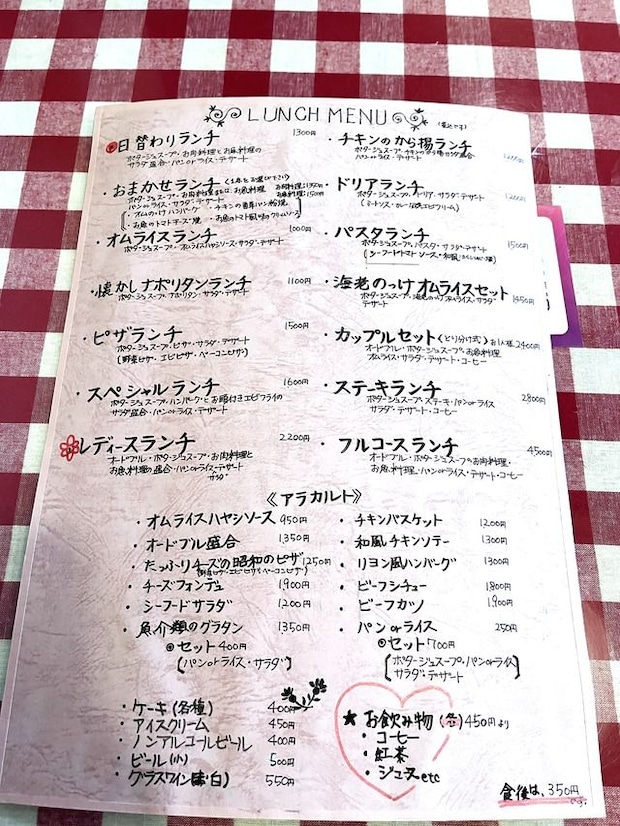 LUNCH MENU
(税込です)
日替わりランチ 1300円
ポタージュスープ・お肉料理とお魚料理の
サラダ盛合・パンorライス・デザート
おまかせランチ
・オムライスランチ 1000円
ポタージュスープ・オムライスハヤシソース・サラダ・デザート
・懐かしナポリタンランチ 1100円
ポタージュスープ・ナポリタン・サラダ・デザート
・ピザランチ 1500円
ポタージュスープ・ピザ・サラダ・デザート
(野菜ピザ・エビピザ・ベーコンピザ)
・スペシャルランチ 1600円
ポタージュスープ・ハンバーグとお頭付きエビフライの
サラダ盛合・パンorライス・デザート
レディースランチ 2200円
オードブル・ポタージュスープ・お肉料理と
お魚料理の盛合・パンorライス・デザート
サラダ
・チキンのから揚ランチ 1200円
ポタージュスープ・チキンのから揚サラダ盛合
パンorライス・デザート
・ドリアランチ 1200円
ポタージュスープ・ドリア・サラダ・デザート
・パスタランチ 1500円
ポタージュスープ・パスタ・サラダ・デザート
・海老のっけオムライスセット 1450円
ポタージュスープ・海老のっけオムライス・サラダ
デザート
・カップルセット(とり分け式) お2人様 2900円
オードブル・ポタージュスープ・お魚料理
オムライス・サラダ・デザート・コーヒー
・ステーキランチ 2800円
ポタージュスープ・ステーキ・パンorライス
サラダ・デザート・コーヒー
・フルコースランチ 4500円
オードブル・ポタージュスープ・お肉料理・
お魚料理・パンorライス・デザート・コーヒー
《アラカルト》
・オムライスハヤシソース 950円
・オードブル盛合 1350円
・たっぷりチーズの昭和のピザ 1250円
(野菜ピザ・エビピザ・ベーコンピザ)
・チーズフォンデュ 1,900円
・シーフードサラダ 1200円
・魚介類のグラタン 1350円
◎セット 400円
[パンorライス・サラダ]
・チキンバスケット 1200円
・和風チキンソテー 1300円
・リヨン風ハンバーグ 1300円
・ビーフシチュー 1800円
・ビーフカツ 1,900円
・パンorライス 250円
◎セット 700円
[ポタージュスープ・パンorライス
サラダ・デザート]
・ケーキ(各種) 400円
・アイスクリーム 450円
・ノンアルコールビール 400円
・ビール(小) 500円
・グラスワイン(赤・白) 550円
★お飲み物(各)450円より
・コーヒー
・紅茶
・ジュースetc
食後は、350円
です。